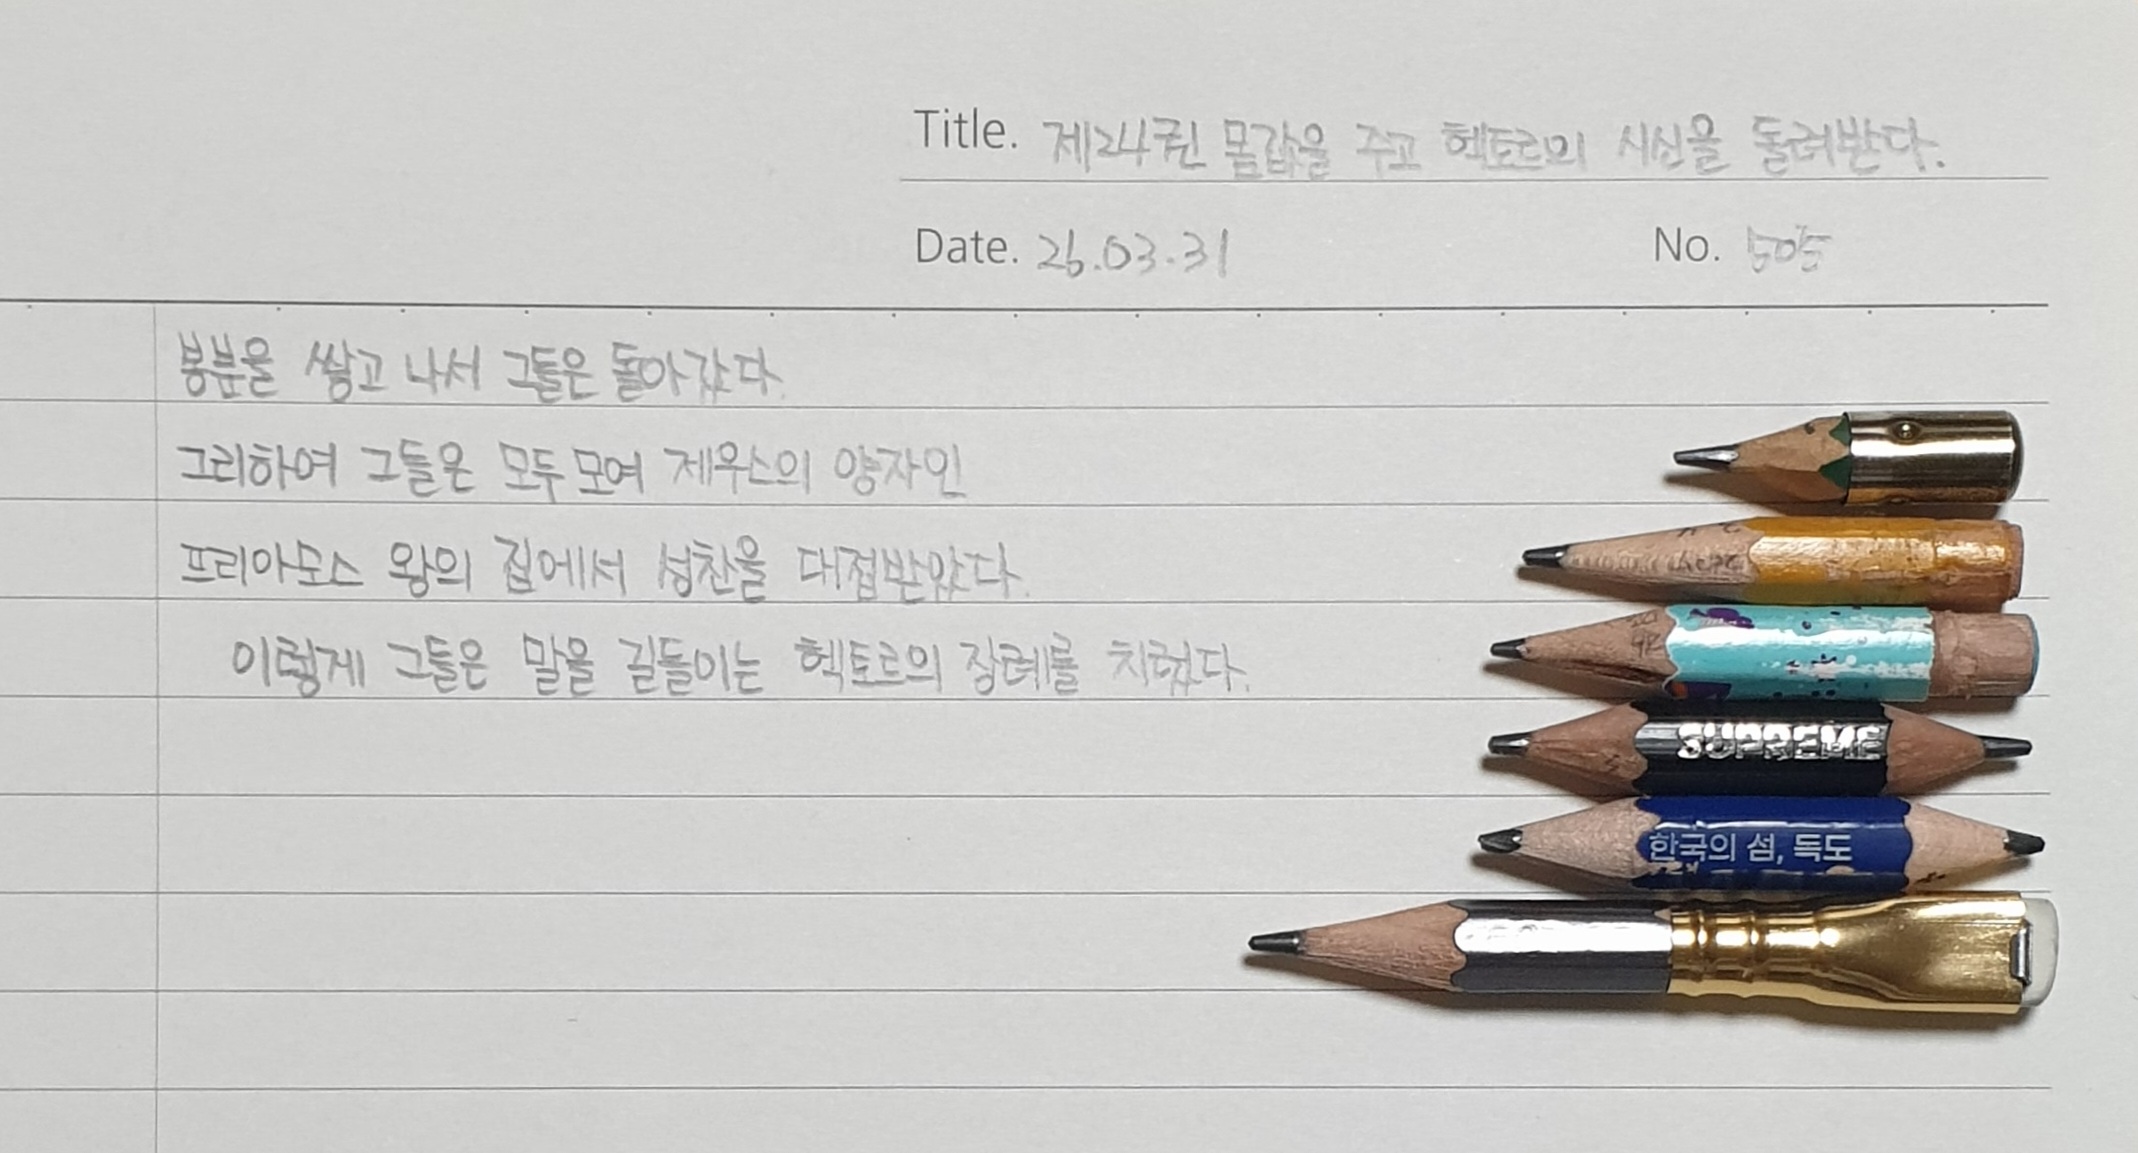 Title. 제24권 몸값을 주고 헥토르의 시신을 돌려받다.
Date. 26.03.31
No. 505
봉분을 쌓고 나서 그들은 돌아갔다.
그리하여 그들은 모두 모여 제우스의 양자인
프리아모스 왕의 집에서 성찬을 대접받았다.
이렇게 그들은 말을 길들이는 헥토르의 장례를 치렀다.
SUPREME
한국의 섬, 독도